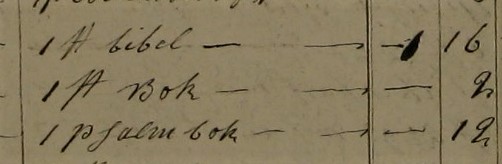 1 St bibel — — — 1 16
1 St Bok — — — 2
1 psalm bok — — — 12